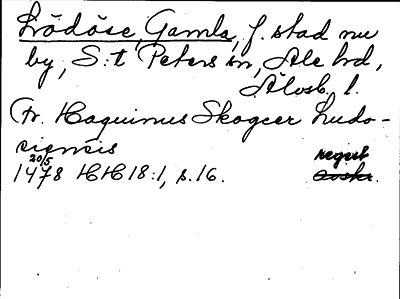 Lödöse, Gamla, f. stad nu
by, S:t Peters sn, Ale hd,
Älvsb. l.
Fr. Haquinus Skogeer Ludo-
siensis
20/5 regest
1478 HH 18:1, s. 16. avskr.